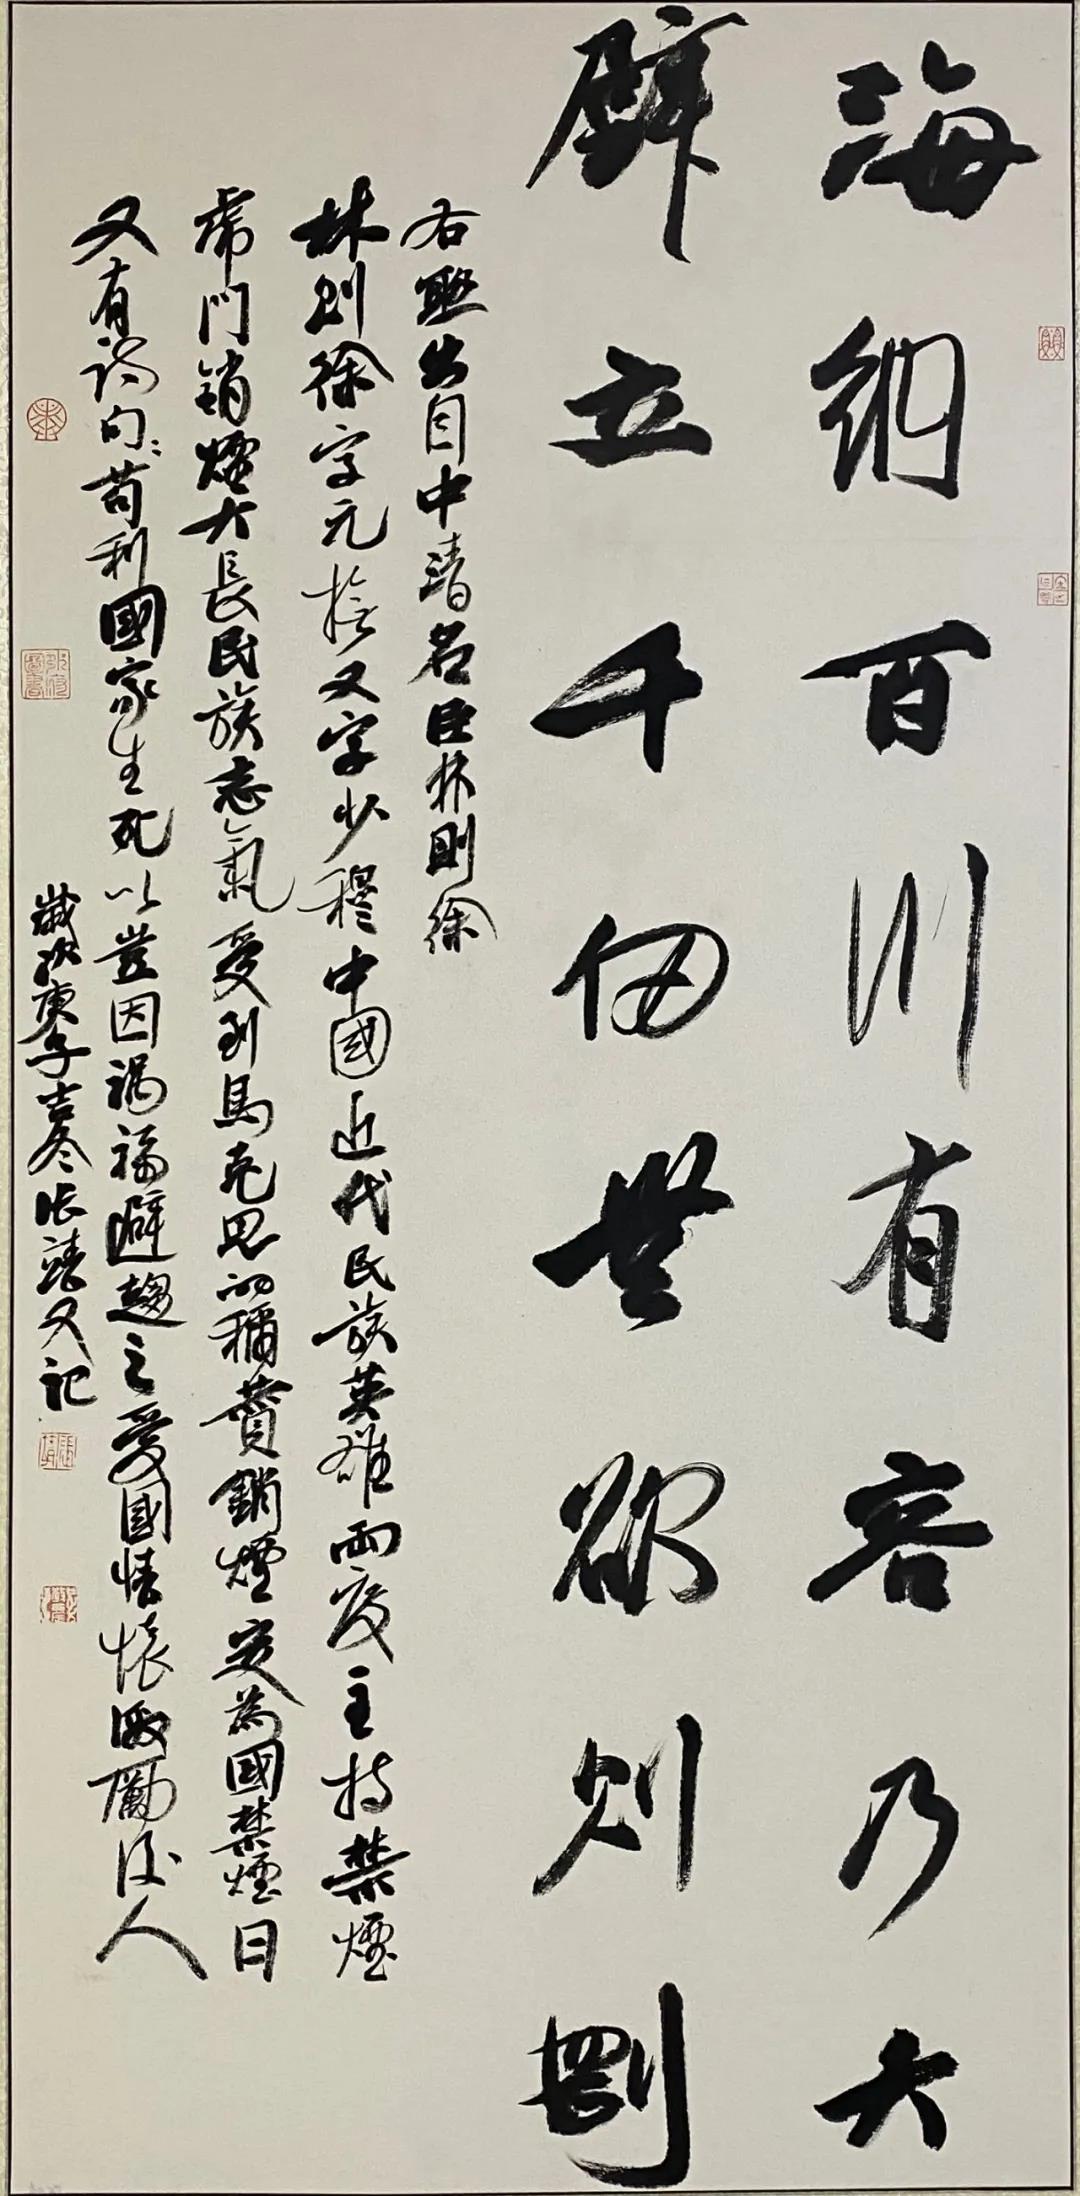 海納百川有容乃大
壁立千仞無欲則剛
右聯出自中清名臣林則徐
林則徐字元撫又字少穆中國近代民族英雄兩度主持禁煙
虎門銷煙大長民族志氣受到馬克思的稱贊銷煙定為國禁煙日
又有詩句：苟利國家生死以豈因禍福避趨之愛國情懷激勵後人
歲次庚子吉冬張靖又記